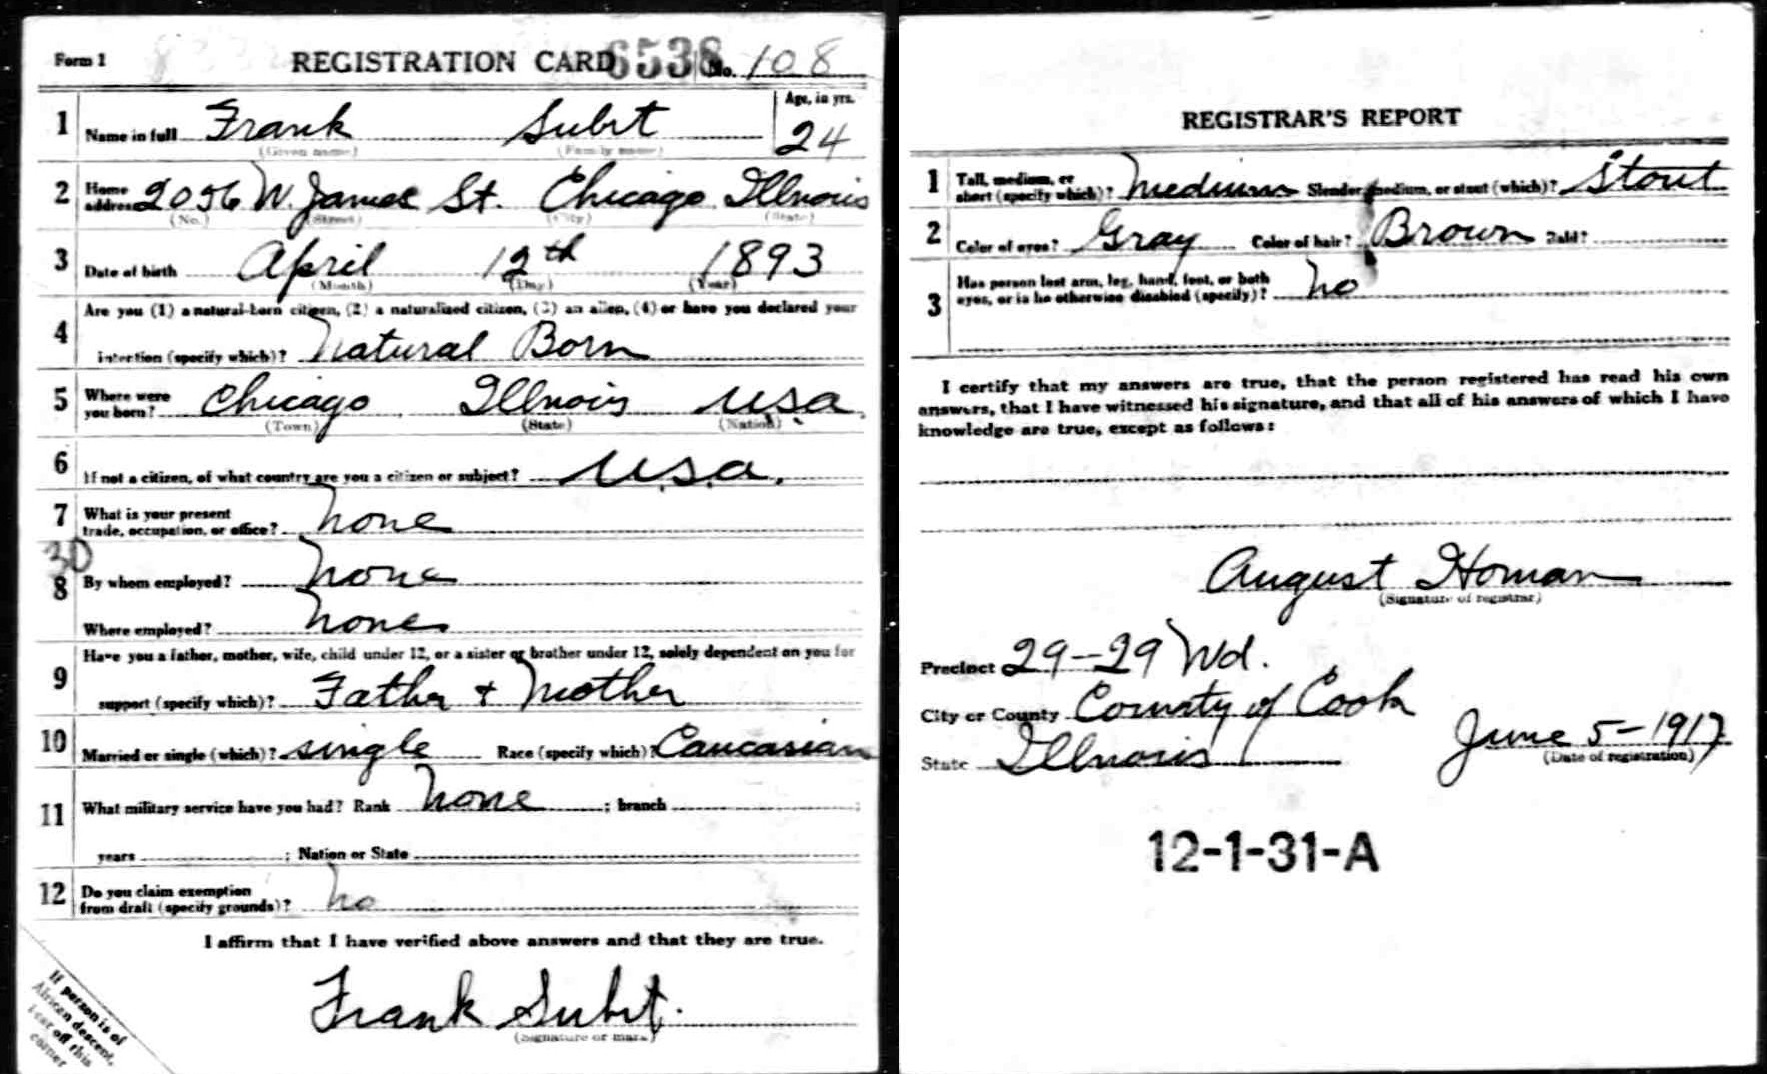 Form 1 REGISTRATION CARD 6538 No. 108
1 Name in full Frank Subrt Age, in yrs. 24
(Given name) (Family name)
2 Home address 2056 W. James St. Chicago Illnois
(No.) (Street) (City) (State)
3 Date of birth April 12th 1893
(Month) (Day) (Year)
4 Are you (1) a natural-born citizen, (2) a naturalized citizen, (3) an alien, (4) or have you declared your
intention (specify which)? Natural Born
5 Where were you born? Chicago Illnois USA
(Town) (State) (Nation)
6 If not a citizen, of what country are you a citizen or subject? U.S.A.
7 What is your present
trade, occupation, or office? None
30
8 By whom employed? None
Where employed? None
9 Have you a father, mother, wife, child under 12, or a sister or brother under 12, solely dependent on you for
support (specify which)? Father + Mother
10 Married or single (which)? single Race (specify which)? Caucasian
11 What military service have you had? Rank None ; branch ;
years ; Nation or State
12 Do you claim exemption
from draft (specify grounds)? No
I affirm that I have verified above answers and that they are true.
Frank Subrt.
(Signature or mark)
If person is of
African descent,
tear off this
corner
REGISTRAR'S REPORT
1 Tall, medium, or
short (specify which)? Medium Slender, medium, or stout (which)? Stout
2 Color of eyes? Gray Color of hair? Brown Bald?
3 Has person lost arm, leg, hand, foot, or both
eyes, or is he otherwise disabled (specify)? No
I certify that my answers are true, that the person registered has read his own
answers, that I have witnessed his signature, and that all of his answers of which I have
knowledge are true, except as follows:
August Homan
(Signature of registrar)
Precinct 29-29 Wd.
City or County County of Cook
State Illnois June 5-1917
(Date of registration)
12-1-31-A